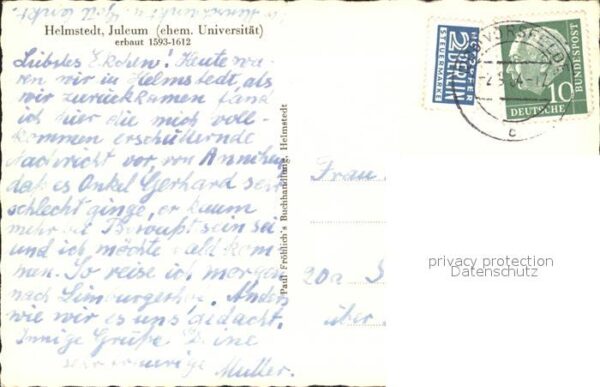 Helmstedt, Juleum (ehem. Universität)
erbaut 1593-1612
Liebstes Evchen! Heute wa-
ren wir in Helmstedt, als
wir zurückkamen fand
ich hier die mich voll-
kommen erschütternde
Nachricht vor, von
daß es Onkel Gerhard sehr
schlecht ginge, er kaum
mehr bei Bewußtsein sei
und ich möchte bald kom-
men. So reise ich morgen
nach Limburgerhof. Anders
wie wir es uns gedacht.
Innige Grüße Deine
sehr traurige Mutter.
Paul Fröhlich's Buchhandlung, Helmstedt
NOTOPFER
2 BERLIN
STEUERMARKE
VORSFELDE
10
DEUTSCHE
BUNDESPOST
c
Frau
20a
über
privacy protection
Datenschutz